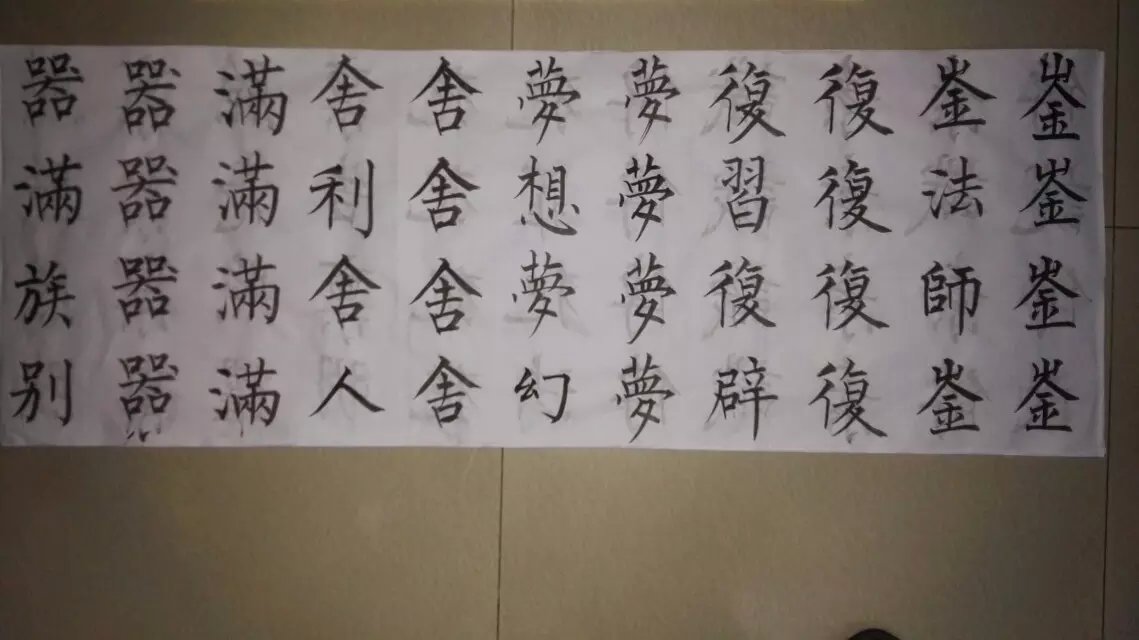 崟崟崟崟
崟法師崟
復復復復
復習復辟
夢夢夢夢
夢想夢幻
舍舍舍舍
舍利舍人
滿滿滿滿
器器器器
器滿族别